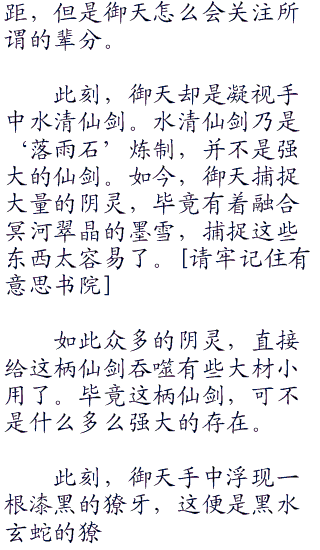 距，但是御天怎么会关注所
谓的辈分。
此刻，御天却是凝视手
中水清仙剑。水清仙剑乃是
‘落雨石’炼制，并不是强
大的仙剑。如今，御天捕捉
大量的阴灵，毕竟有着融合
冥河翠晶的墨雪，捕捉这些
东西太容易了。[请牢记住有
意思书院]
如此众多的阴灵，直接
给这柄仙剑吞噬有些大材小
用了。毕竟这柄仙剑，可不
是什么多么强大的存在。
此刻，御天手中浮现一
根漆黑的獠牙，这便是黑水
玄蛇的獠